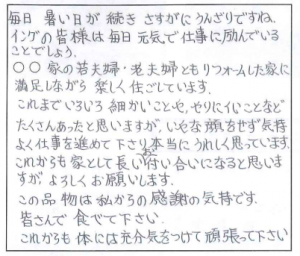 毎日 暑い日が 続き さすがに うんざりですね.
イングの皆様は毎日 元気で仕事に励んでいる
ことでしょう.
○○ 家の若夫婦・老夫婦ともリフォームした家に
満足しながら 楽しく住ごしています.
これまでいろいろ 細かいことや、やりにくいことなど
たくさんあったと思いますが、いやな顔をせず気持
よく仕事を進めて下さり本当にうれしく思っています.
これからも家として長い付き合いになると思いま
すが よろしくお願いします.
この品物は私からの感謝の気持です.
皆さんで 食べて下さい
これからも 体には充分気をつけて 頑張って下さい